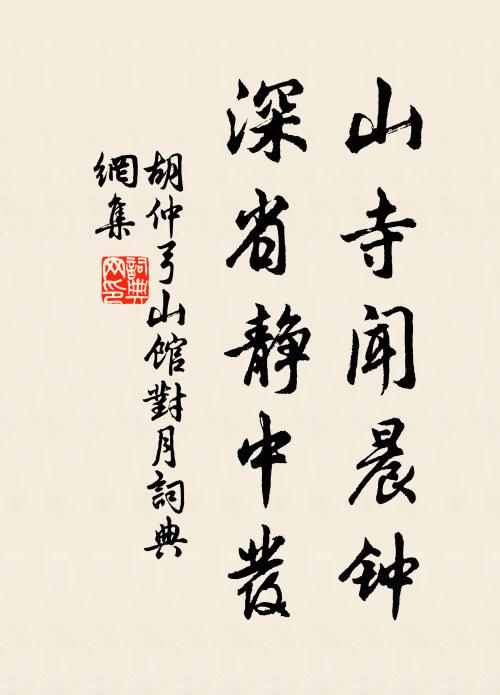 山寺闻晨钟
深省静中發
胡仲弓山馆對月詞典
網集
詞典網印